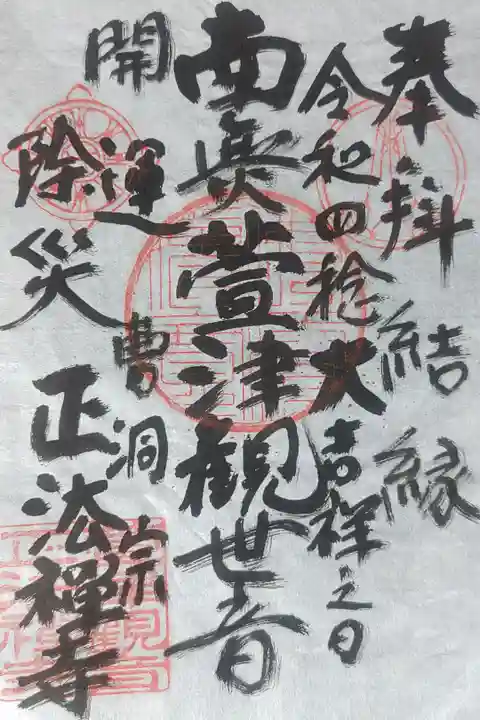 奉拝 結縁
令和四稔大吉祥之日
南無萱津観世音
開運
除災
曹洞宗
正法禅寺